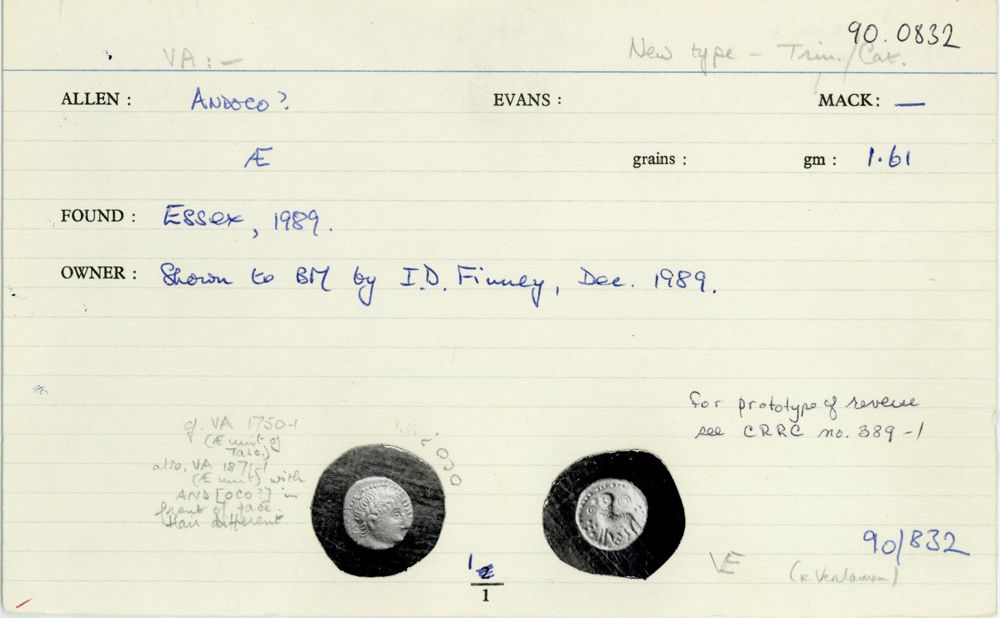 90.0832
VA : – New type – Trin./Cat.
ALLEN : ANDOCO? EVANS : MACK: —
Æ grains : gm : 1.61
FOUND : Essex, 1989.
OWNER : Shown to BM by I.D. Finney, Dec. 1989.
for prototype of reverse
see CRRC no. 389-1
cf. VA 1750-1
(Æ unit of
Tasc.)
also, VA 1871-1
(Æ unit) with
AND[OCO?] in
front of face.
Hair different
90/832
VE
1
1